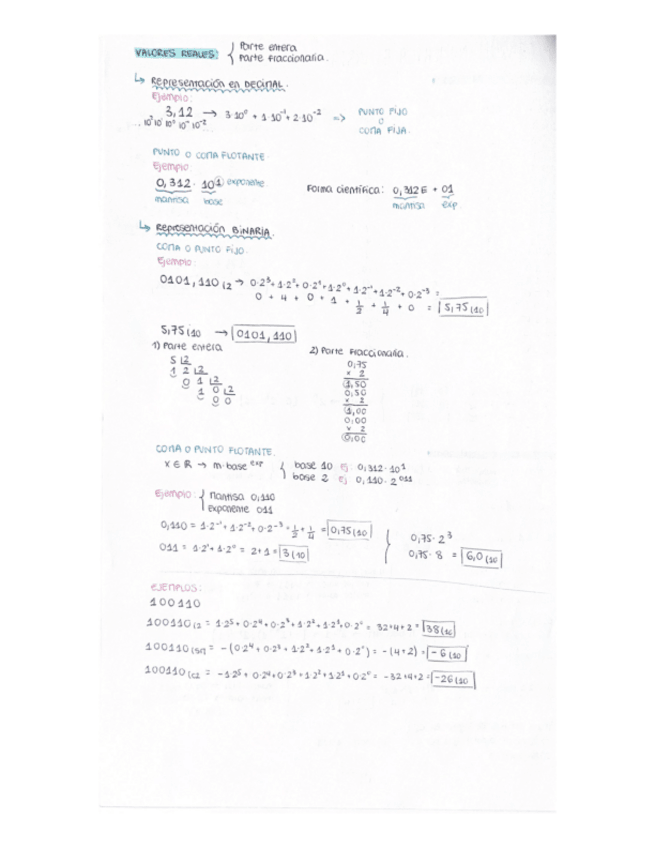 VALORES REALES: { Parte entera
Parte fraccionaria.
↳ Representación en DECIMAL.
Ejemplo:
3,12 → 3·10⁰ + 1·10⁻¹ + 2·10⁻² => PUNTO FIJO
O
COMA FIJA.
PUNTO O COMA FLOTANTE
Ejemplo
0,312 · 10¹ exponente
mantisa base
Forma científica: 0,312 E + 01
mantisa exp
↳ Representación BINARIA.
COMA O PUNTO FIJO.
Ejemplo:
0101,110₍₂ → 0·2³ + 1·2² + 0·2¹ + 1·2⁰ + 1·2⁻¹ + 1·2⁻² + 0·2⁻³ =
0 + 4 + 0 + 1 + 1/2 + 1/4 + 0 = 5,75₍₁₀
5,75₍₁₀ → 0101,110
1) Parte entera
5 2
1 2 2
0 1 2
1 0 2
0 0
2) Parte Fraccionaria.
0,75
x 2
1,50
0,50
x 2
1,00
0,00
x 2
0,00
COMA O PUNTO FLOTANTE.
x ∈ R → m·base exp { base 10 ej: 0,312·10¹
base 2 ej 0,110·2⁰¹¹
Ejemplo: { Mantisa 0,110
exponente 011
0,110 = 1·2⁻¹ + 1·2⁻² + 0·2⁻³ = 1/2 + 1/4 = 0,75₍₁₀
011 = 1·2¹ + 1·2⁰ = 2+1 = 3₍₁₀
0,75·2³
0,75·8 = 6,0₍₁₀
EJEMPLOS:
100110
100110₍₂ = 1·2⁵ + 0·2⁴ + 0·2³ + 1·2² + 1·2¹ + 0·2⁰ = 32+4+2 = 38₍₁₀
= -(0·2⁴ + 0·2³ + 1·2² + 1·2¹ + 0·2⁰) = -(4+2) = -6₍₁₀
100110₍C2 = -1·2⁵ + 0·2⁴ + 0·2³ + 1·2² + 1·2¹ + 0·2⁰ = -32+4+2 = -26₍₁₀